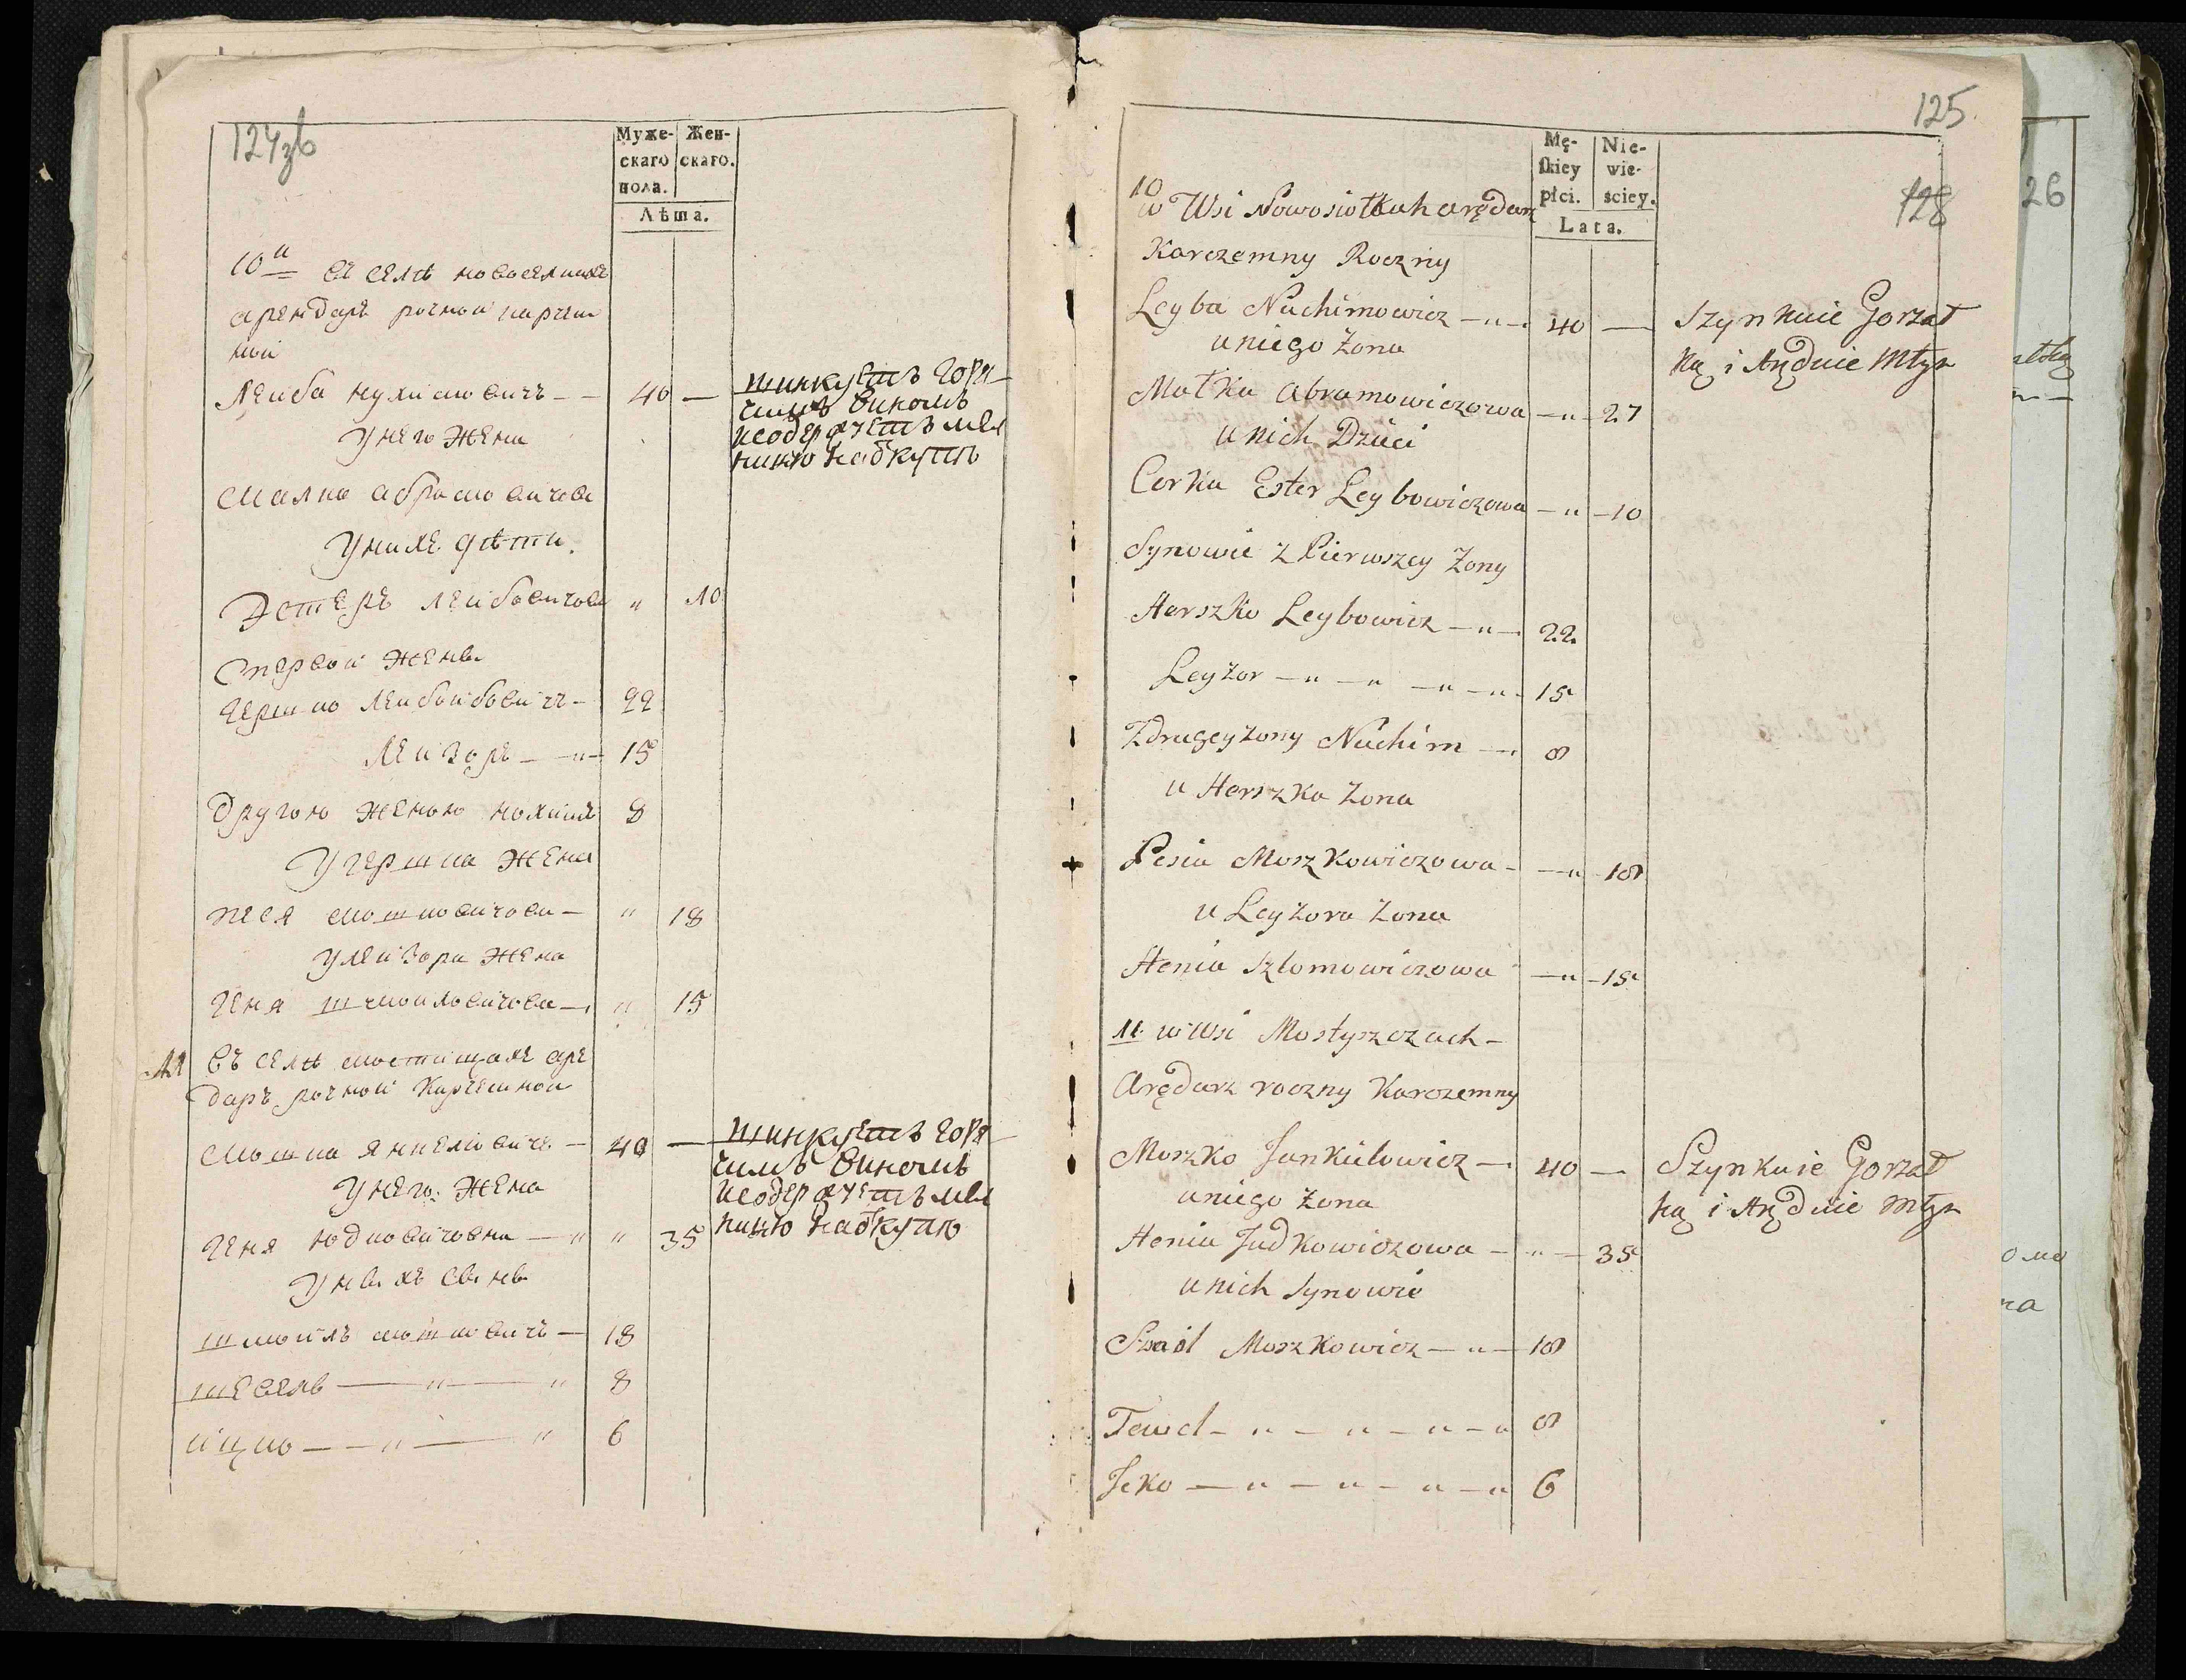 124зв
Муже-
скаго
пола.
Жен-
скаго.
Лѣта.
10й въ селѣ новоселкахъ
арендаръ рочной карчем
ной
Лейба нухимовичъ — 40 —
шинкуетъ горя
чимъ виномъ
исодержуетъ мел
ницю
унего жена
Малка абрамовичова
унихъ дѣти.
Эстеръ лейбовичова " 10
Спервой жены
Гершко Лейбовичъ — 22
Лейзоръ — " — 15
другою женою нохимъ 8
угершка жена
песя мошковичова — " 18
улейзора жена
Геня шмойловичова — " 15
11 въ селѣ мостищахъ аре
даръ рочной карчемной
Мошка янкелювичъ — 40 —
шинкуетъ горя
чимъ виномъ
исодержуетъ мел
ницю
унего жена
Геня юдковичовна — " " 35
уныхъ сыны
шмойлъ мошковичъ — 18
тевель — " — " 8
ицко — " — " 6
125.
128
Mę-
skiey
płci.
Nie-
wie-
ściey.
Lata.
10
w Wsi Nowosiołkah arędarz
Karczemny Roczny
Leyba Nuchimowicz — " — 40 —
Szynkuie Gorzał
ką i Aręduie Młyn
u niego Żona
Małka Abramowiczowa — " — 27
u nich Dzieci
Corka Ester Leybowiczowa — " — 10
Synowie z Pierwszey Żony
Herszko Leybowicz — " — 22
Leyzor — " — " — " — " — 15
Zdrugey żony Nuchim — 8
u Herszka Żona
Pesia Moszkowiczowa — " — 18
u Leyzora Żona
Henia Szlomowiczowa — " — 15
11. w Wsi Mostyszczach —
Arędarz roczny Karczemny
Moszko Jankielowicz — 40 —
Szynkuie Gorzał
ką i Aręduie Młyn
u niego Żona
Henia Judkowiczowa — " — 35
u nich Synowie
Moszkowicz — " — 18
Tewel — " — " — " — " 8
Icko — " — " — " — " 6
26